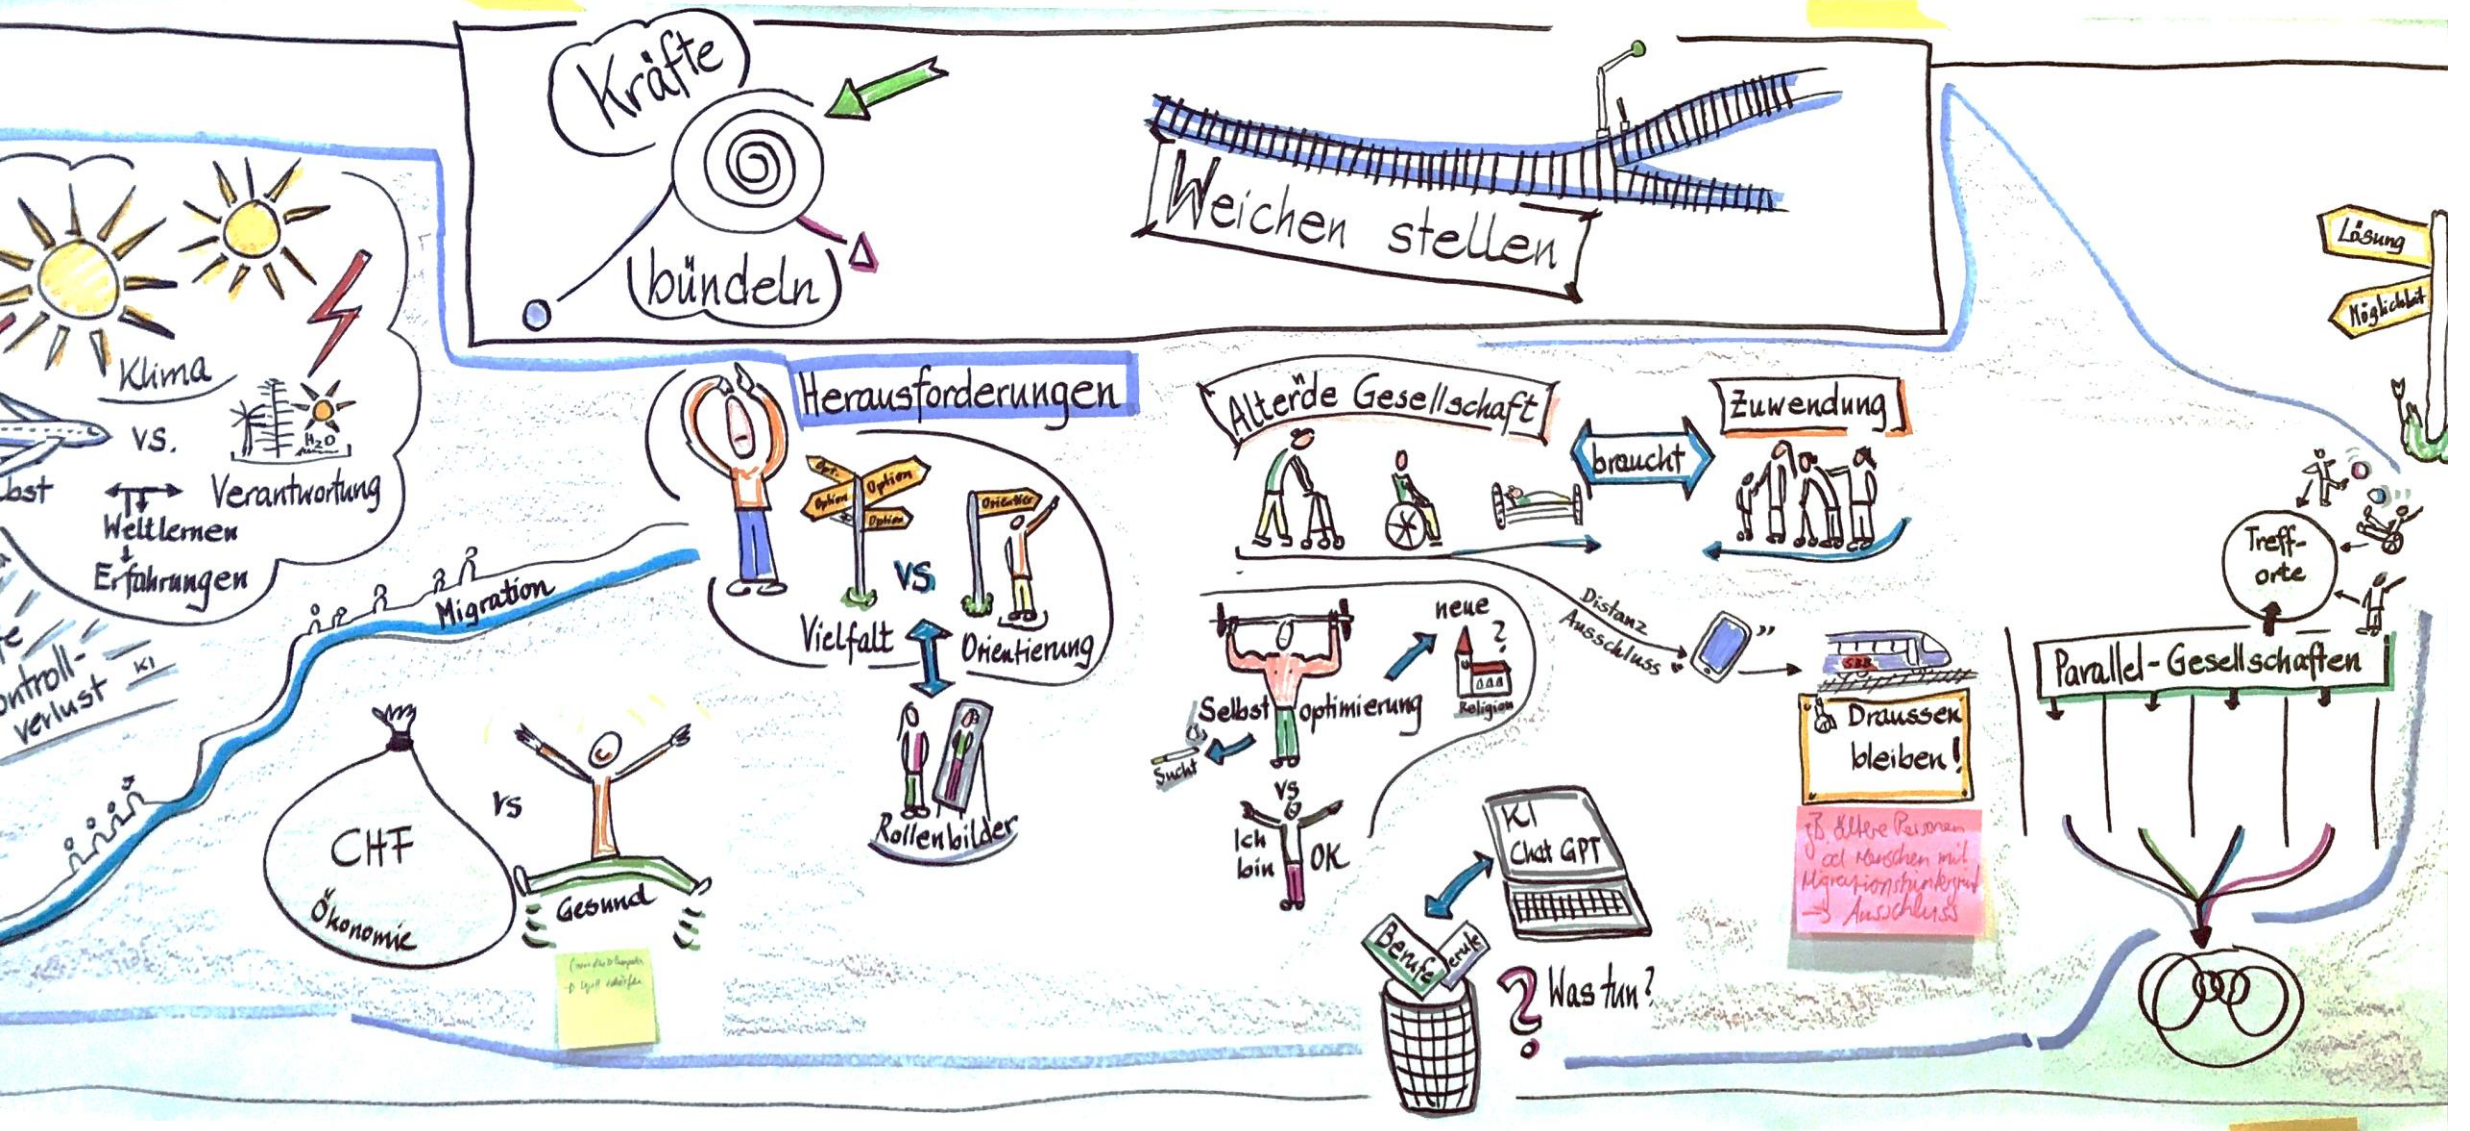 Kräfte
bündeln
Weichen stellen
Klima
vs.
H₂O
Verantwortung
Weltlernen
Erfahrungen
verlust
KI
Migration
CHF
Ökonomie
vs
Gesund
Herausforderungen
Opt.
Option
Option
Option
vs.
Orientier
Vielfalt
Orientierung
Rollenbilder
Alternde Gesellschaft
braucht
Zuwendung
Distanz
Ausschluss
neue
?
Religion
Selbstoptimierung
Sucht
vs
Ich
bin
OK
KI
Chat GPT
Berufe
? Was tun?
SBB
Draussen
bleiben!
zB ältere Personen
od Menschen mit
Migrationshintergrund
→ Ausschluss
Lösung
Möglichkeit
Treff-
orte
Parallel-Gesellschaften